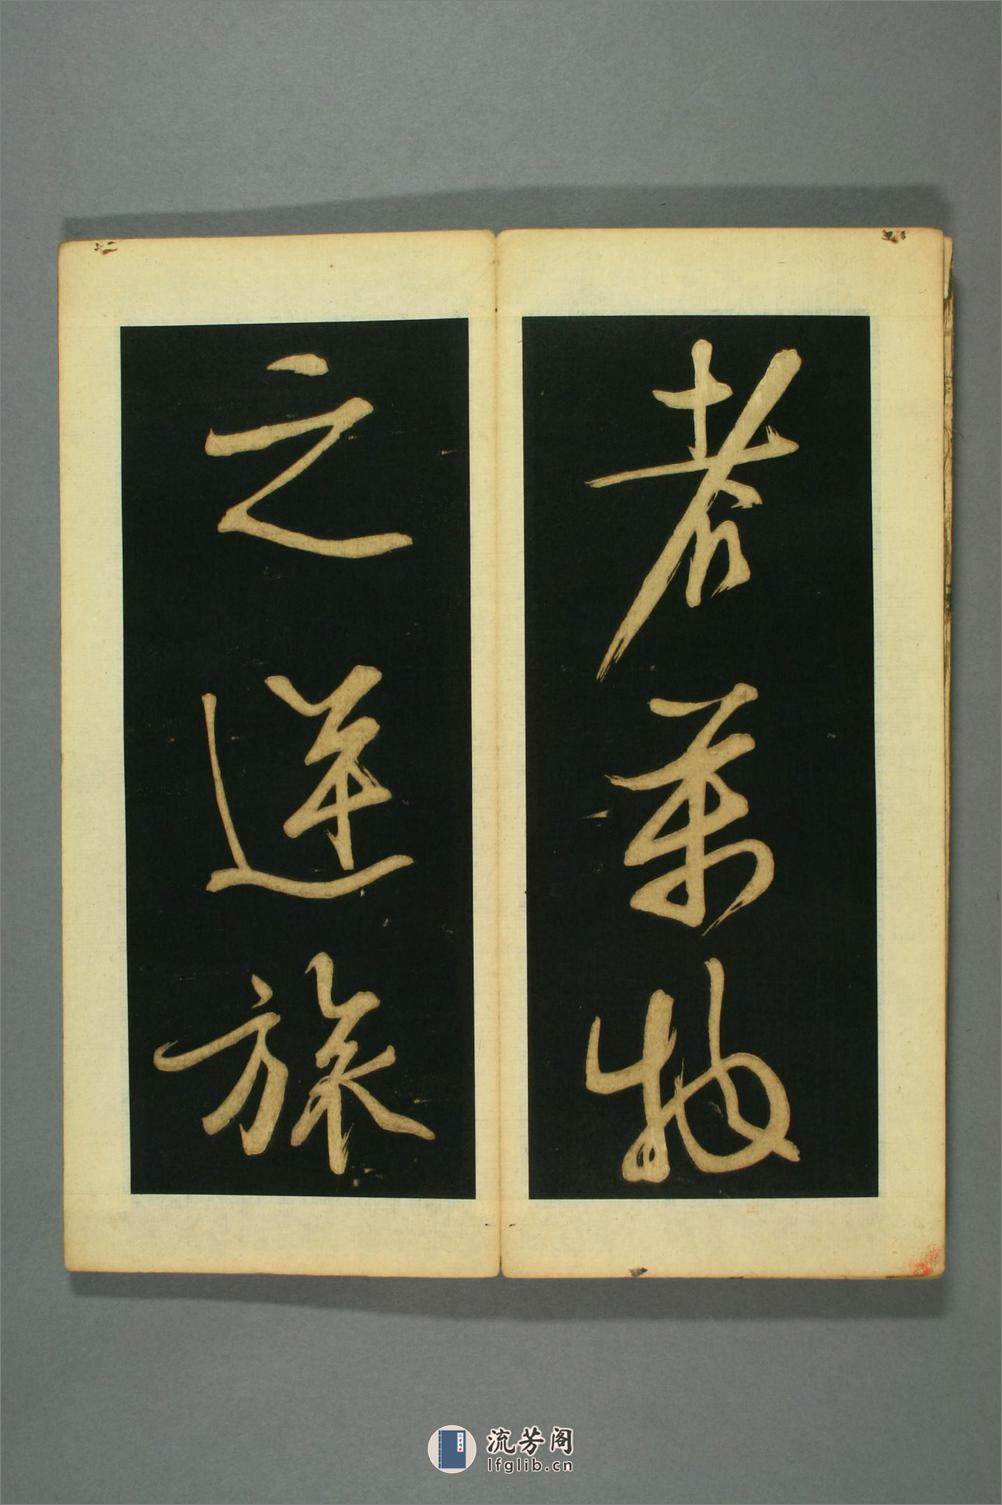 者萬物
之逆旅
流芳阁
lfglib.cn